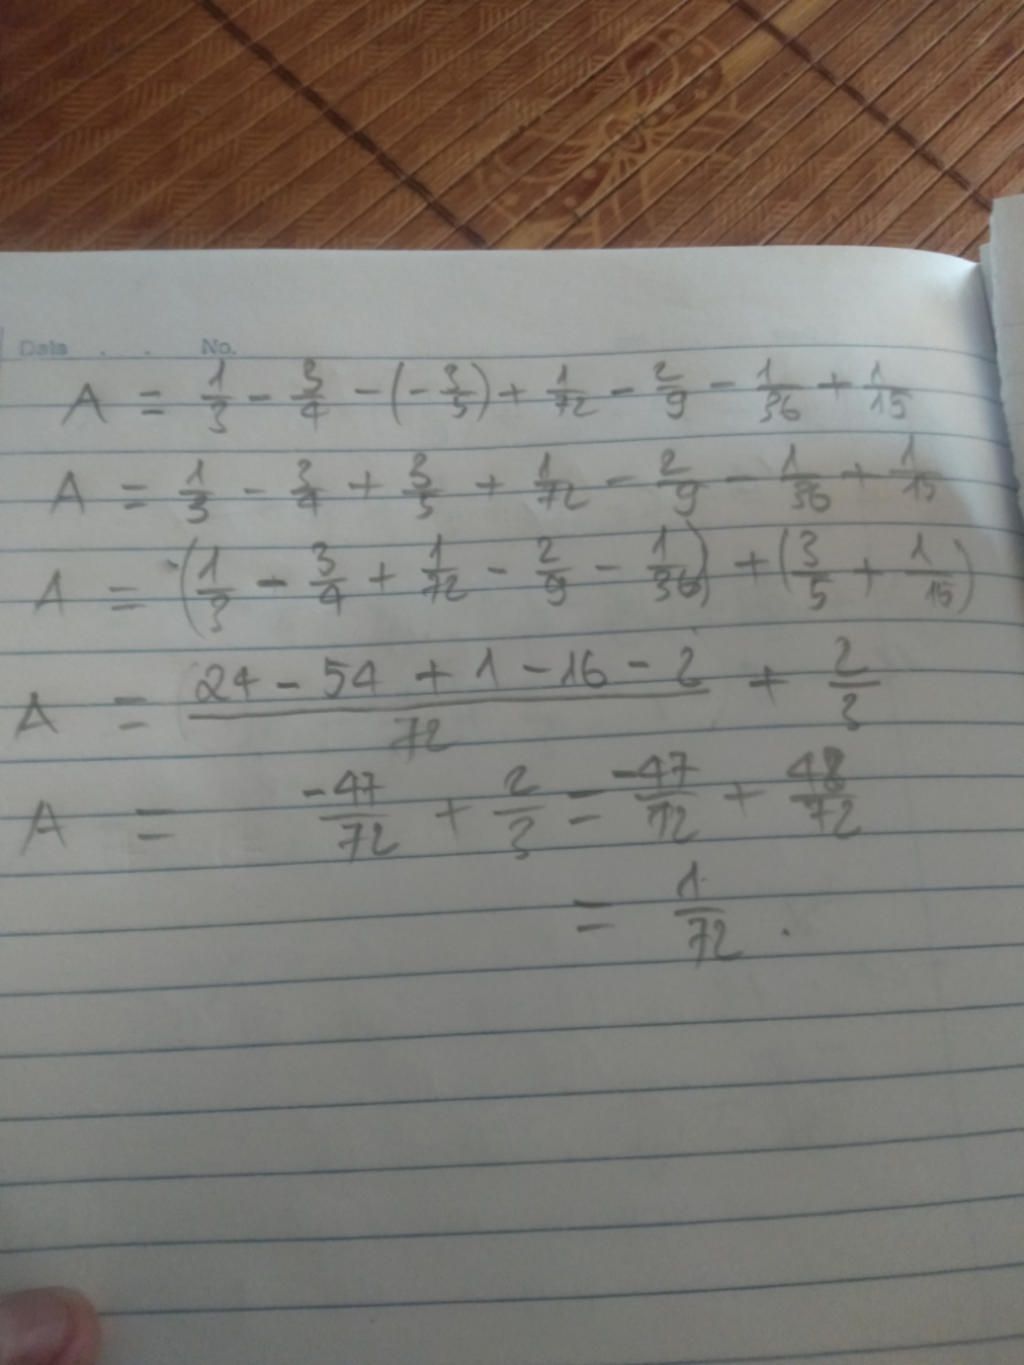 Date . . No.
A = 1/3 - 3/4 - (-3/5) + 1/72 - 2/9 - 1/36 + 1/15
A = 1/3 - 3/4 + 3/5 + 1/72 - 2/9 - 1/36 + 1/15
A = (1/3 - 3/4 + 1/72 - 2/9 - 1/36) + (3/5 + 1/15)
A = (24 - 54 + 1 - 16 - 2)/72 + 2/3
A = -47/72 + 2/3 = -47/72 + 48/72
= 1/72 .